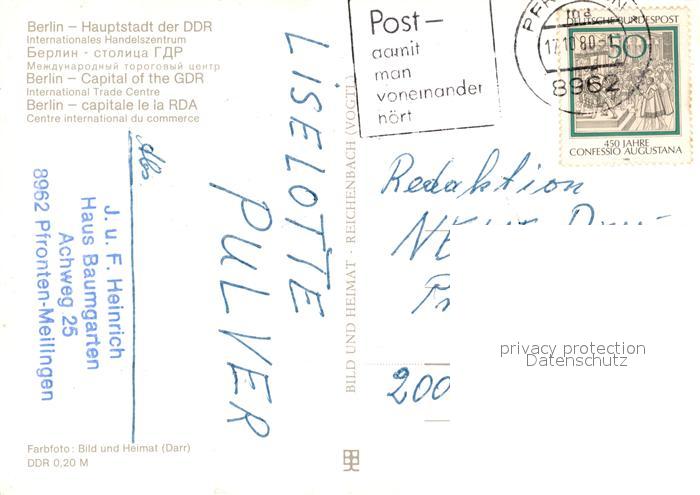 Berlin – Hauptstadt der DDR
Internationales Handelszentrum
Берлин - столица ГДР
Международный тороговый центр
Berlin – Capital of the GDR
International Trade Centre
Berlin – capitale le la RDA
Centre international du commerce
Abs.
J. u. F. Heinrich
Haus Baumgarten
Achweg 25
8962 Pfronten-Meilingen
LISELOTTE
PULVER
BILD UND HEIMAT · REICHENBACH (VOGTL)
Post –
damit
man
voneinander
hört
17.10.80
8962
DEUTSCHE BUNDESPOST
50
450 JAHRE
CONFESSIO AUGUSTANA
Redaktion
200
privacy protection
Datenschutz
Farbfoto: Bild und Heimat (Darr)
DDR 0,20 M